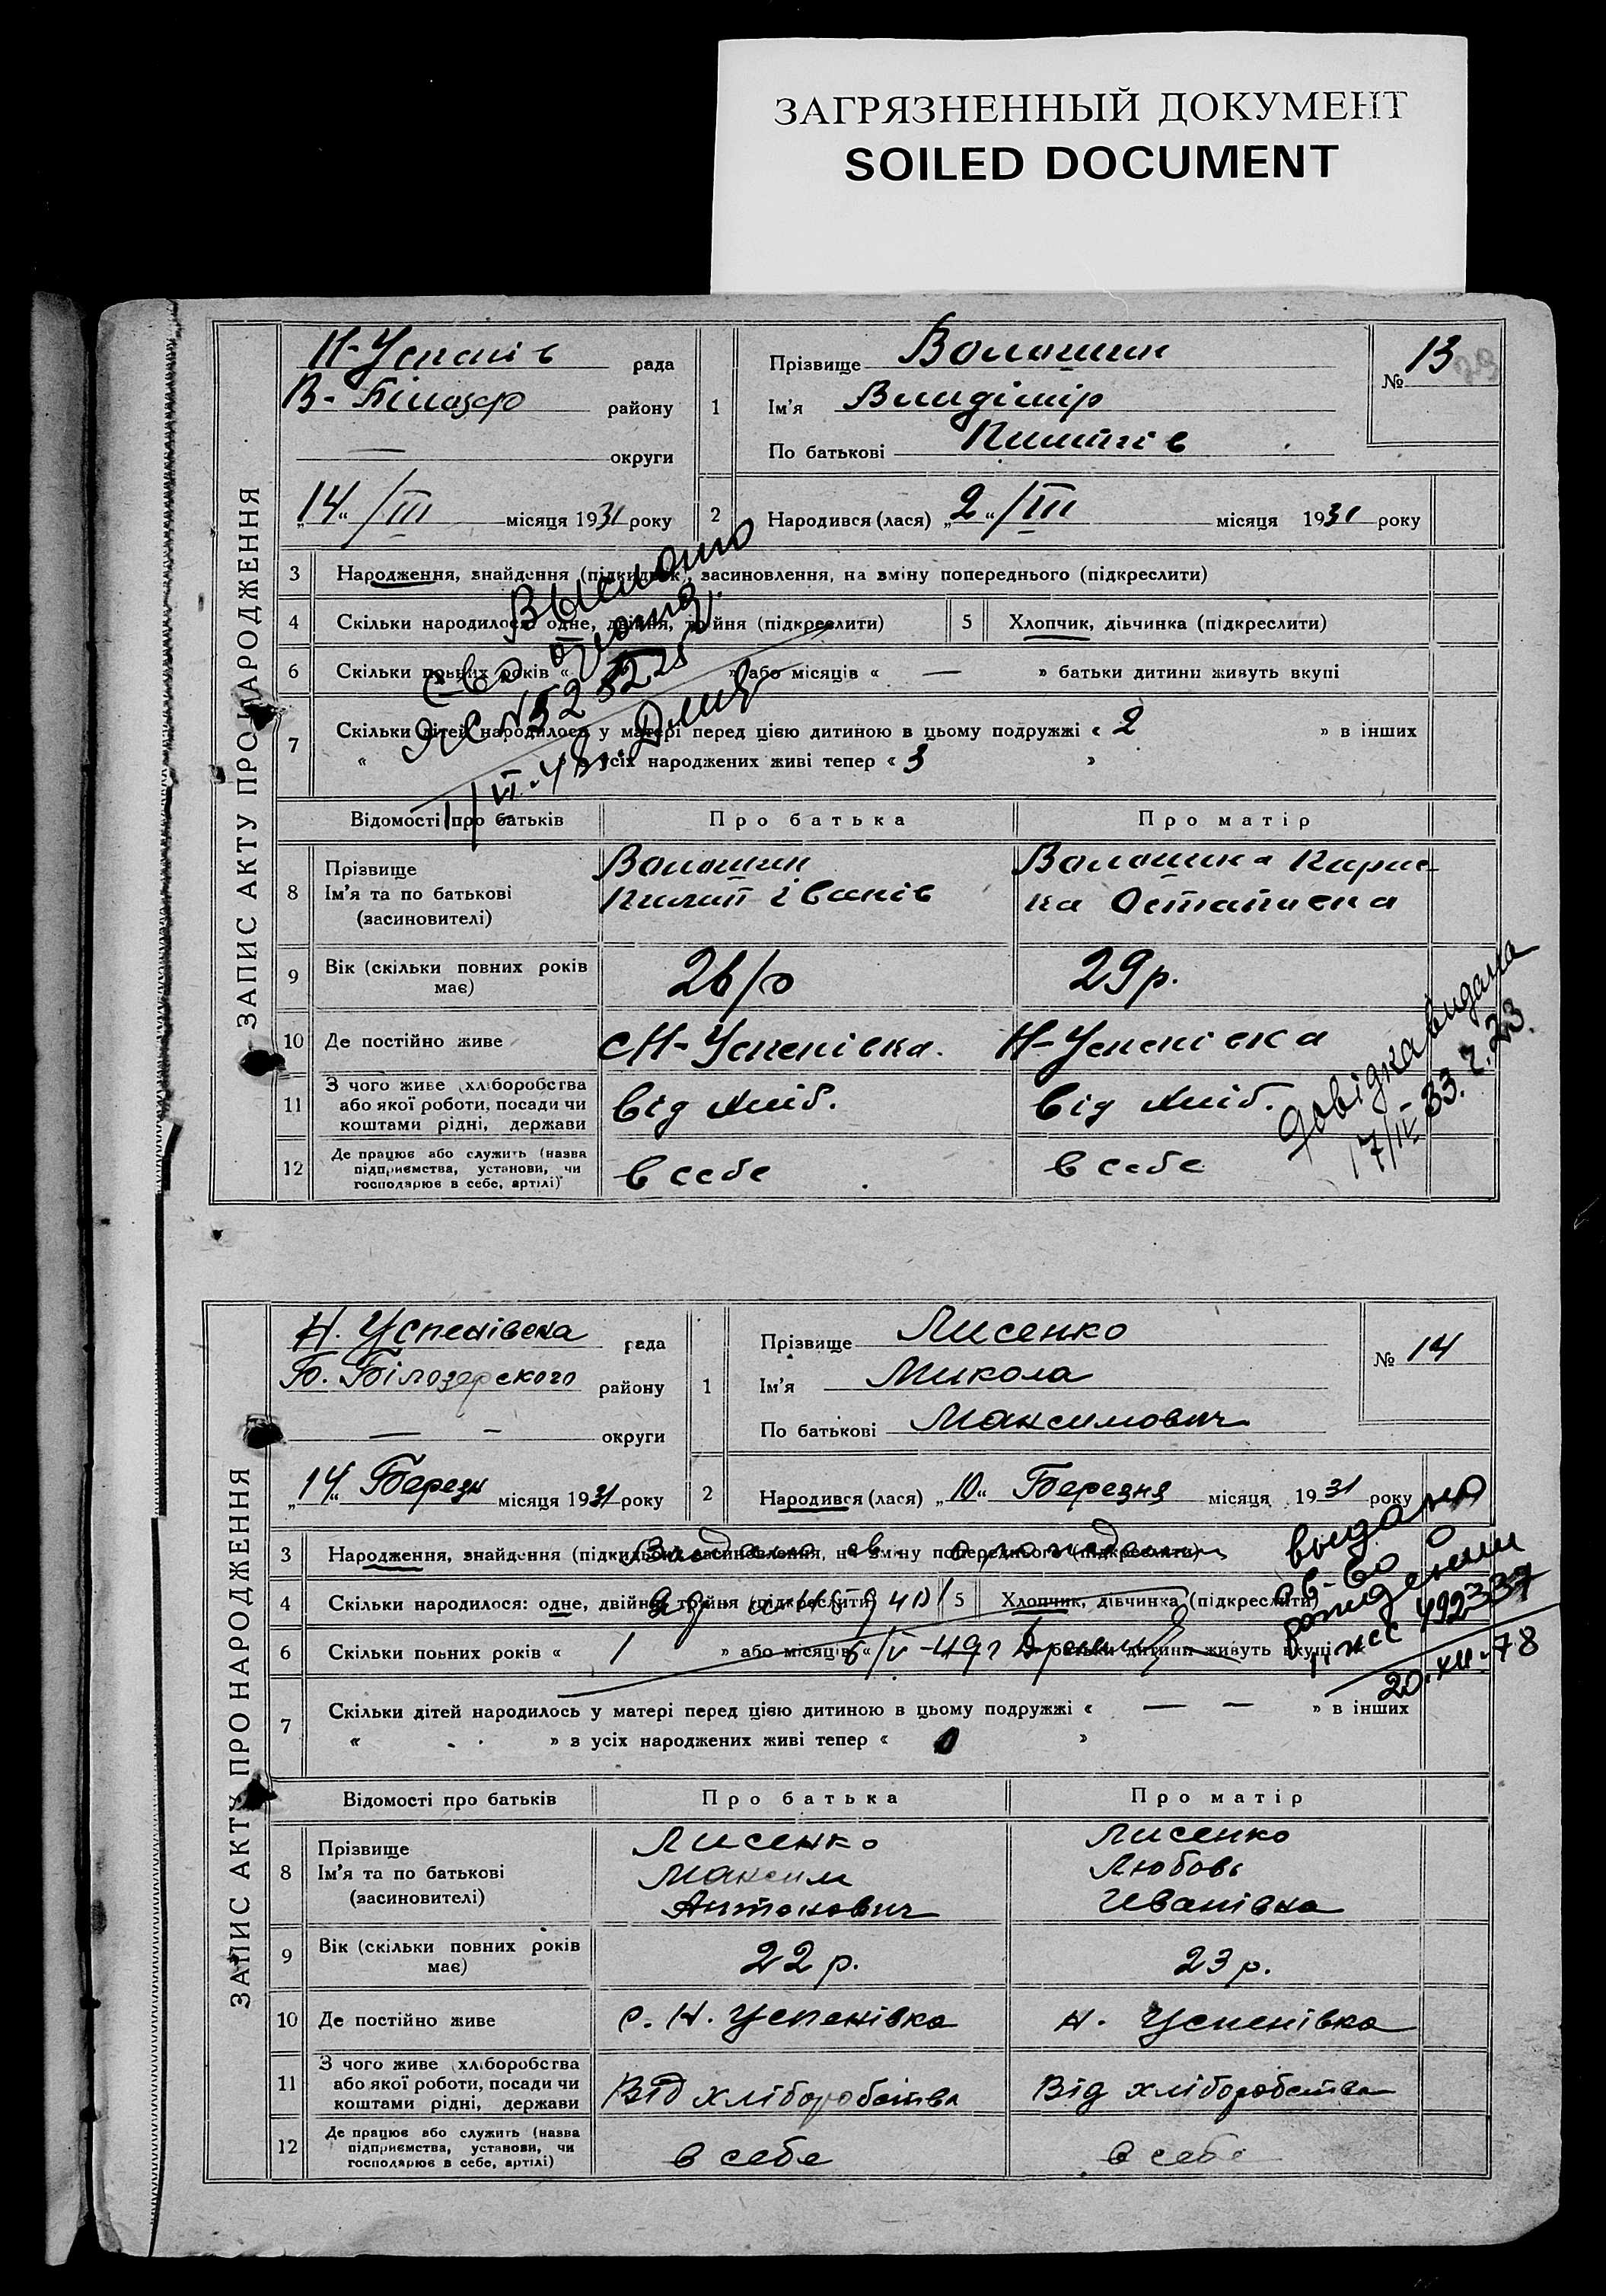 ЗАГРЯЗНЕННЫЙ ДОКУМЕНТ
SOILED DOCUMENT
ЗАПИС АКТУ ПРО НАРОДЖЕННЯ
Н-Успенів рада
В-Білозер району
— округи
„14“ /III місяця 1931 року
1
Прізвище Волошин
Ім'я Владімір
По батькові Пилипів
№ 13
2 Народився (лася) „2“ /III місяця 1931 року
3 Народження, знайдення (підкидьок), засиновлення, на зміну попереднього (підкреслити)
4 Скільки народилося: одне, двійня, тройня (підкреслити)
5 Хлопчик, дівчинка (підкреслити)
6 Скільки повних років « » або місяців « — » батьки дитини живуть вкупі
7 Скільки дітей народилось у матері перед цією дитиною в цьому подружжі « 2 » в інших
« » з усіх народжених живі тепер « 3 »
Відомості про батьків Про батька Про матір
8 Прізвище
Ім'я та по батькові
(засновителі)
Волошин
Пилип Іванів
Волошина Кирис-
на Остапивна
9 Вік (скільки повних років має) 26/р 29 р.
10 Де постійно живе с Н-Успенівка. Н-Успенівка
11 З чого живе (хліборобства
або якої роботи, посади чи
коштами рідні, держави
від хліб. від хліб.
12 Де працює або служить (назва
підприємства, установи, чи
господарює в себе, артілі)
в себе в себе
довідка видана
17/IV-33. г. 23.
ЗАПИС АКТУ ПРО НАРОДЖЕННЯ
Н. Успенівска рада
Б. Білозерского району
— — округи
„14“ Березн місяця 1931 року
1
Прізвище Лисенко
Ім'я Микола
По батькові Максимович
№ 14
2 Народився (лася) „10“ Березня місяця 1931 року
3 Народження, знайдення (підкидьок), засиновлення, на зміну попереднього (підкреслити)
4 Скільки народилося: одне, двійня, тройня (підкреслити)
5 Хлопчик, дівчинка (підкреслити)
6 Скільки повних років « 1 » або місяців « » батьки дитини живуть вкупі
выдано
св-во о
рождении
492337
20.XII-78
7 Скільки дітей народилось у матері перед цією дитиною в цьому подружжі « — — » в інших
« » з усіх народжених живі тепер « 0 »
Відомості про батьків Про батька Про матір
8 Прізвище
Ім'я та по батькові
(засиновителі)
Лисенко
Максим
Антонович
Лисенко
Любовь
Иванівна
9 Вік (скільки повних років має) 22 р. 23 р.
10 Де постійно живе с. Н. Успенівка Н. Успенівка
11 З чого живе (хліборобства
або якої роботи, посади чи
коштами рідні, держави
Від хліборобства Від хліборобства
12 Де працює або служить (назва
підприємства, установи, чи
господарює в себе, артілі)
в себе в себе